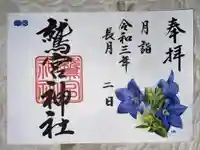 奉拝
月詣
令和三年
長月
二日
鷲宮神社